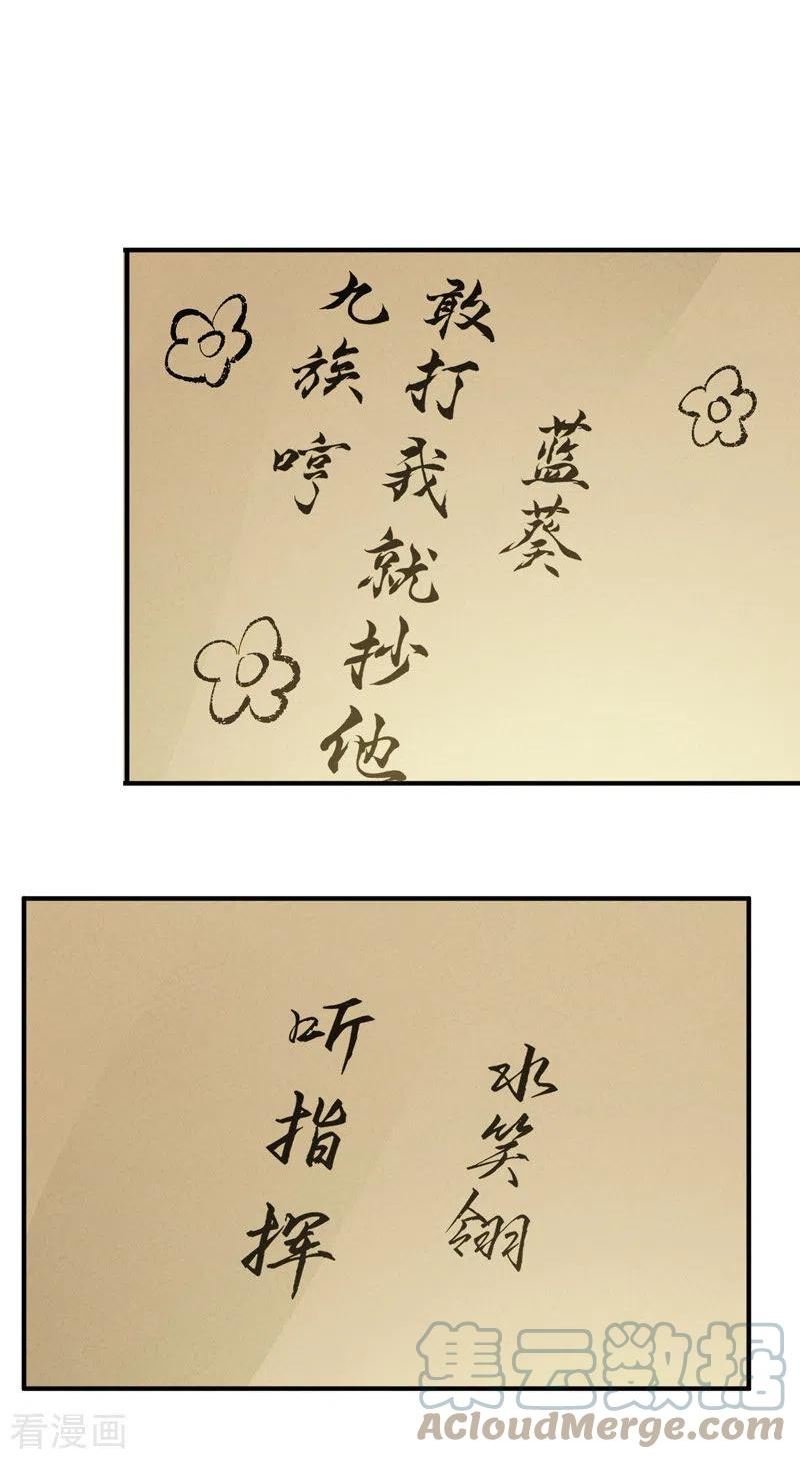 蓝葵
敢打我就抄他
九族哼
水笑翎
听指挥
集云数据
ACloudMerge.com
看漫画